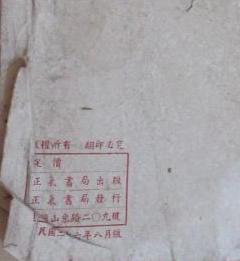 權所有 翻印必究
定價
正氣書局出版
正氣書局發行
山東路二〇九號
民國三十六年八月版